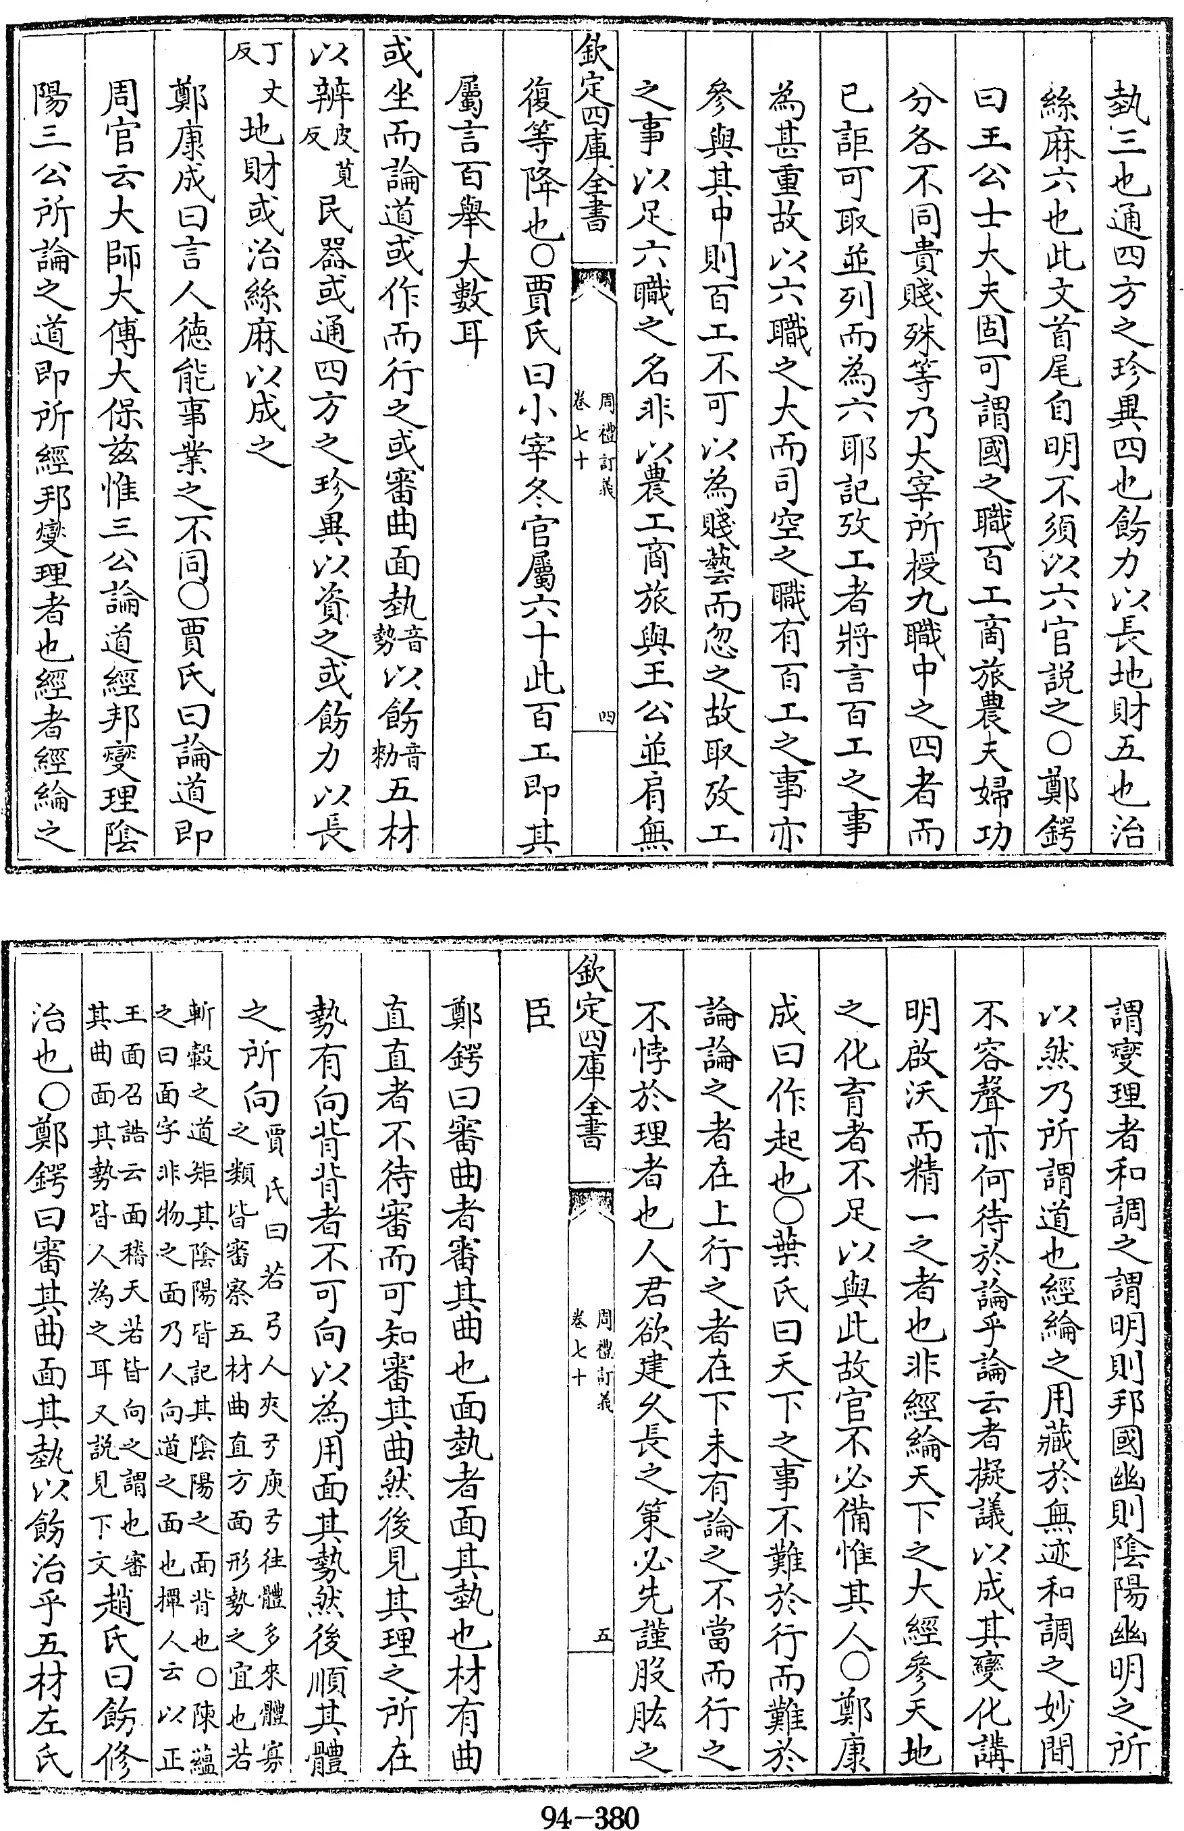 埶三也通四方之珍異四也飭力以長地財五也治
絲麻六也此文首尾自明不須以六官説之○鄭鍔
曰王公士大夫固可謂國之職百工商旅農夫婦功
分各不同貴賤殊等乃大宰所授九職中之四者而
已詎可取並列而為六耶記攷工者將言百工之事
為甚重故以六職之大而司空之職有百工之事亦
參與其中則百工不可以為賤藝而忽之故取攷工
之事以足六職之名非以農工商旅與王公並肩無
欽定四庫全書
周禮訂義
卷七十
四
復等降也○賈氏曰小宰冬官屬六十此百工即其
屬言百舉大數耳
或坐而論道或作而行之或審曲面埶音勢以飭音勑五材
以辨皮莧反民器或通四方之珍異以資之或飭力以長
丁丈反地財或治絲麻以成之
鄭康成曰言人德能事業之不同○賈氏曰論道即
周官云大師大傅大保兹惟三公論道經邦燮理陰
陽三公所論之道即所經邦燮理者也經者經綸之
謂燮理者和調之謂明則邦國幽則陰陽幽明之所
以然乃所謂道也經綸之用藏於無迹和調之妙間
不容聲亦何待於論乎論云者擬議以成其變化講
明啟沃而精一之者也非經綸天下之大經參天地
之化育者不足以與此故官不必備惟其人○鄭康
成曰作起也○葉氏曰天下之事不難於行而難於
論論之者在上行之者在下未有論之不當而行之
不悖於理者也人君欲建久長之策必先謹股肱之
欽定四庫全書
周禮訂義
卷七十
五
臣
鄭鍔曰審曲者審其曲也面埶者面其埶也材有曲
直直者不待審而可知審其曲然後見其理之所在
勢有向背背者不可向以為用面其勢然後順其體
之所向賈氏曰若弓人夾弓庾弓往體多來體寡
之類皆審察五材曲直方面形勢之宜也若
斬轂之道矩其陰陽皆記其陰陽之面背也○陳藴
之曰面字非物之面乃人向道之面也撢人云以正
王面召誥云面稽天若皆向之謂也審
其曲面其勢皆人為之耳又説見下文趙氏曰飭修
治也○鄭鍔曰審其曲面其埶以飭治乎五材左氏
94-380